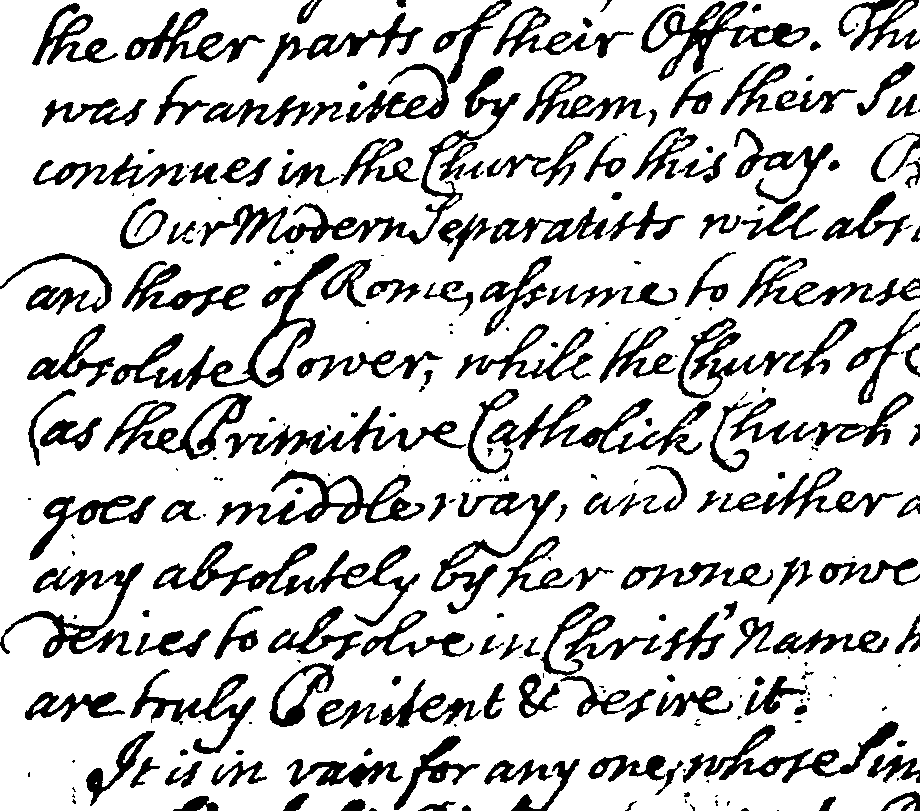 the other parts of their Office. Thu
was transmitted by them, to their Su
continues in the Church to this day.
Our Modern Separatists will abs
and those of Rome, assume to themse
absolute Power, while the Church of
(as the Primitive Catholick Church
goes a middle way, and neither a
any absolutely by her owne powe
denies to absolve in Christs' Name
are truly Penitent & desire it.
It is in vain for any one, whose Sin